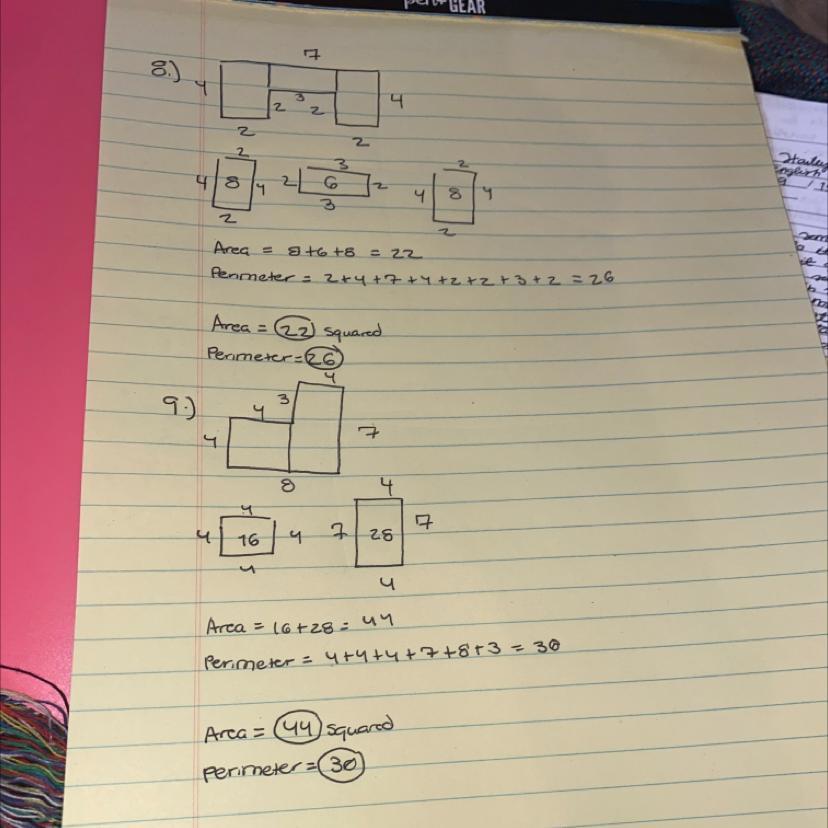 GEAR
7
8.) 4 4
2 3 2
2 2
2 3 2
4 8 4 2 6 2 4 8 4
2 3 2
Area = 8+6+8 = 22
Perimeter = 2+4+7+4+2+2+3+2 = 26
Area = 22 squared
Perimeter = 26
4
9.) 4 3
4 7
8
4 4
4 16 4 7 28 7
4 4
Area = 16+28 = 44
Perimeter = 4+4+4+7+8+3 = 30
Area = 44 squared
Perimeter = 30